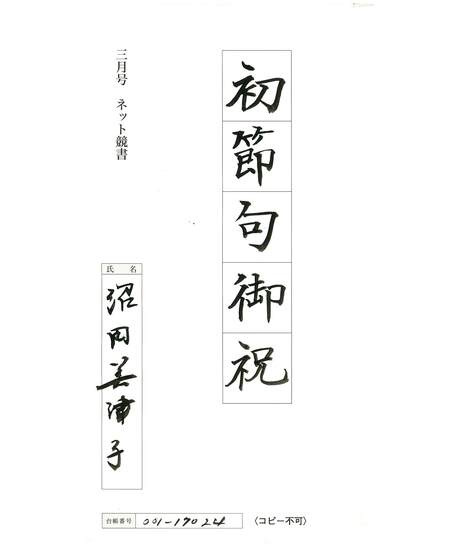 初節句御祝
三月号 ネット競書
氏名
沼田美津子
台帳番号 001-17024
(コピー不可)